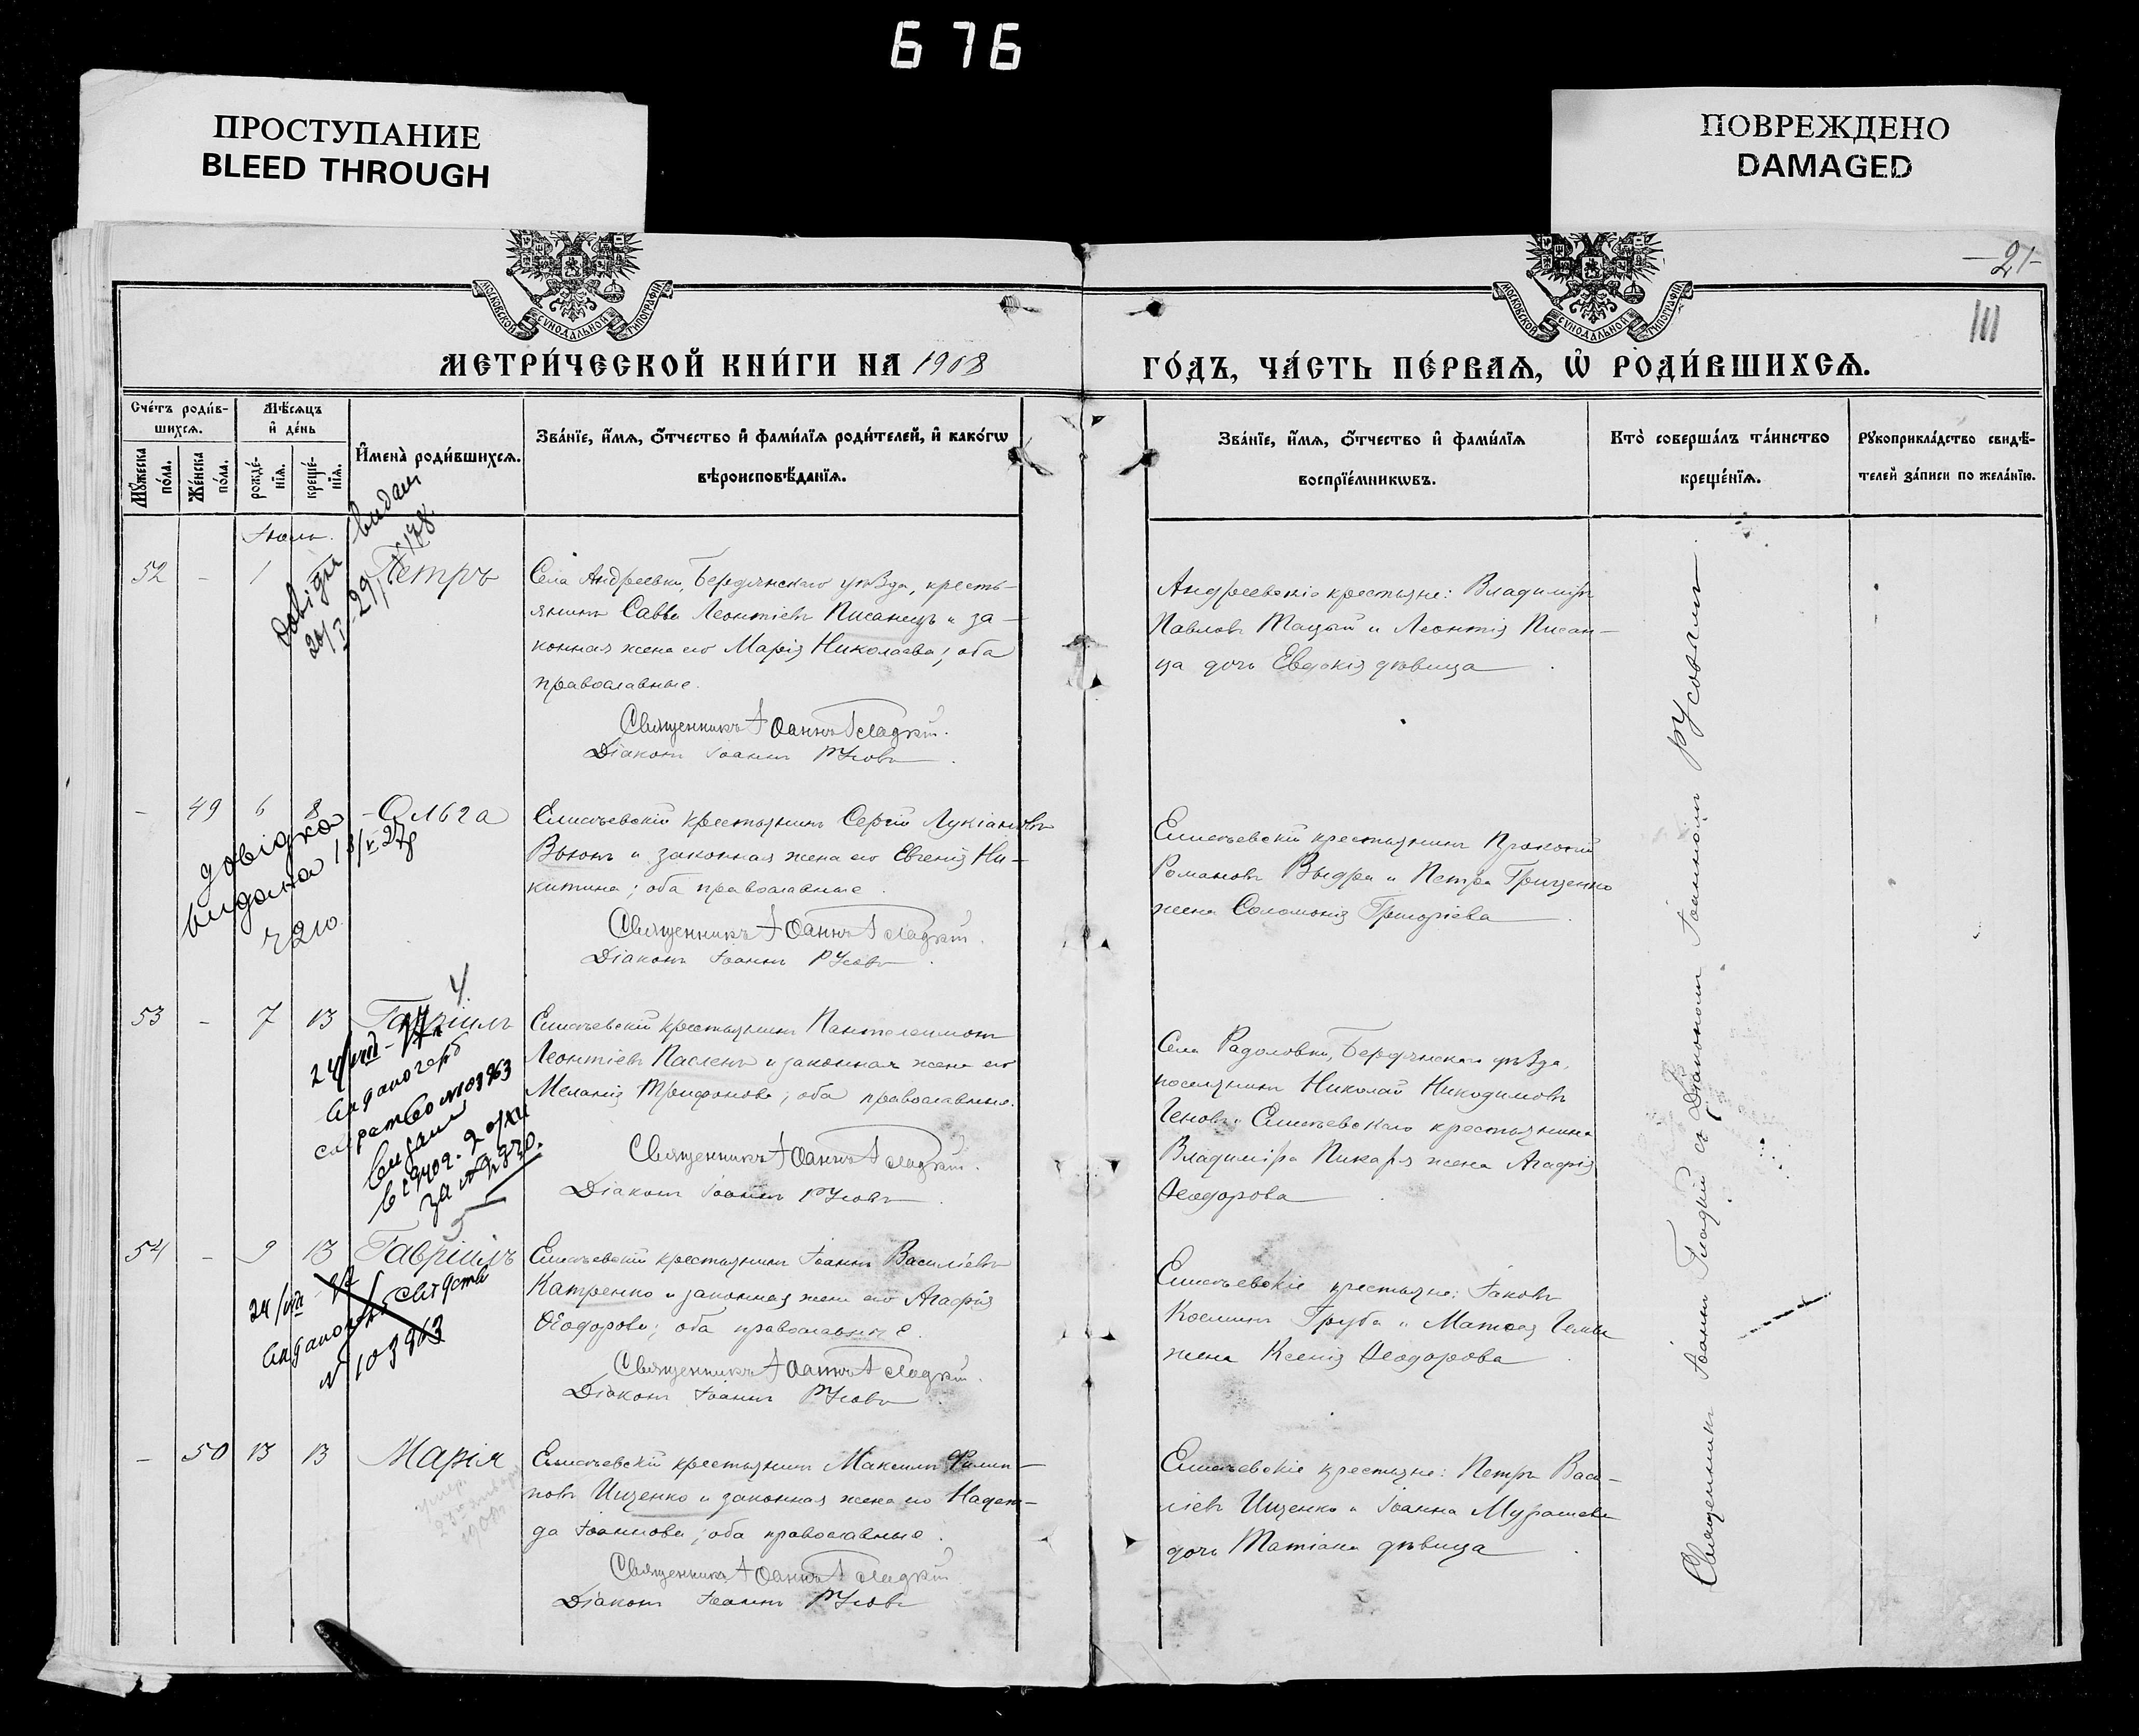 676
ПРОСТУПАНИЕ
BLEED THROUGH
ПОВРЕЖДЕНО
DAMAGED
МОСКОВСКОЙ СѴНОДАЛЬНОЙ ТИПОГРАФІИ
МОСКОВСКОЙ СѴНОДАЛЬНОЙ ТИПОГРАФІИ
-21-
III
МЕТРИ́ЧЕСКОЙ КНИ́ГИ НА 1908
ГО́ДЪ, ЧА́СТЬ ПЕ́РВАЯ, Ѡ РОДИ́ВШИХСЯ.
Сче́тъ роди́в-
шихся.
Мѣ́сяцъ
и де́нь
Му́жеска по́ла.
Же́нска по́ла.
рожде́-
нїя.
креще́-
нїя.
Имена̀ роди́вшихся.
Зва́нїе, и́мя, о́тчество и фами́лїя роди́телей, и како́гѡ
вѣроисповѣ́данїя.
Зва́нїе, и́мя, о́тчество и фами́лїя
воспрїе́мникѡвъ.
Кто̀ соверша́лъ та́инство
креще́нїя.
Рукоприкла́дство свидѣ́-
телей за́писи по жела́нїю.
Іюль.
52 - 1 Петръ
Села Андреевки, Бердянскаго уѣзда, кресть-
янинъ Савва Леонтіевъ Писанецъ и за-
конная жена его Марія Николаева; оба
православные.
Священникъ Іоаннъ Гладкій.
Діаконъ Іоаннъ Русовъ.
Андреевскіе крестьяне: Владиміръ
Павловъ и Леонтія Писан-
ца дочь Евдокія дѣвица.
- 49 6 8 Ольга
довідка
видана
210
Елисѣевскій крестьянинъ Сергій Лукіановъ
Вьюнъ и законная жена его Евгенія Ни-
китина; оба православные.
Священникъ Іоаннъ Гладкій.
Діаконъ Іоаннъ Русовъ.
Елисѣевскій крестьянинъ Прокопій
Романовъ Выдра и Петра Грищенко
жена Соломонія Григоріева.
53 - 7 13 Гавріилъ
Елисѣевскій крестьянинъ Пантелеимонъ
Леонтіевъ Пасленъ и законная жена его
Меланія Трифонова; оба православные.
Священникъ Іоаннъ Гладкій.
Діаконъ Іоаннъ Русовъ.
Села Радоловки, Бердянскаго уѣзда,
поселянинъ Николай Никодимовъ
Геновъ и Елисѣевскаго крестьянина
Владиміра Пикаря жена Агафія
Ѳеодорова.
54 - 9 13 Гавріилъ
№ 103963
Елисѣевскій крестьянинъ Іоаннъ Василіевъ
Катренко и законная жена его Агафія
Ѳеодорова; оба православные.
Священникъ Іоаннъ Гладкій.
Діаконъ Іоаннъ Русовъ.
Елисѣевскіе крестьяне: Іаковъ
Косминъ Груба и Матѳея
жена Ксенія Ѳеодорова.
- 50 13 13 Марія
Елисѣевскій крестьянинъ Максимъ Филип-
повъ Ищенко и законная жена его Надеж-
да Іоаннова; оба православные.
Священникъ Іоаннъ Гладкій
Діаконъ Іоаннъ Русовъ
Елисѣевскіе крестьяне: Петръ Васи-
ліевъ Ищенко и Іоанна
дочь Татіана дѣвица.
Священникъ Іоаннъ Гладкій съ Діакономъ Іоанномъ Русовымъ.